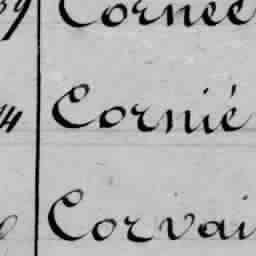 Cornée
14 Cornié
Corvai